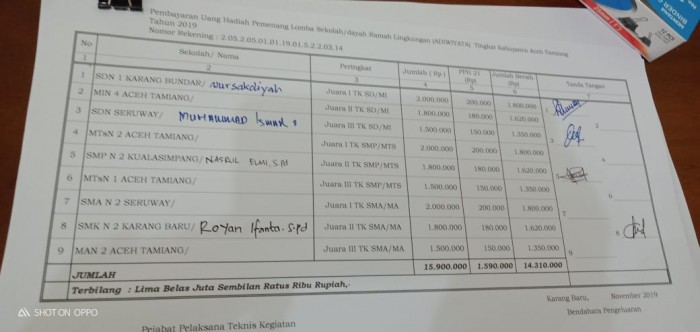 Pembayaran Uang Hadiah Pemenang Lomba Sekolah/dayah Ramah Lingkungan (ADIWIYATA) Tingkat Kabupaten Aceh Tamiang
Tahun 2019
Nomor Rekening : 2.05.2.05.01.01.19.01.5.2.2.03.14
No Sekolah/ Nama Peringkat Jumlah (Rp) PPH 21 (Rp) Jumlah Bersih (Rp) Tanda Tangan
1 2 3 4 5 6 7
1 SDN 1 KARANG BUNDAR/ Nursakdiyah Juara I TK SD/MI 2.000.000 200.000 1.800.000 1
2 MIN 4 ACEH TAMIANG/ Juara II TK SD/MI 1.800.000 180.000 1.620.000 2
3 SDN SERUWAY/ MUHAMMAD Juara III TK SD/MI 1.500.000 150.000 1.350.000 3
4 MTsN 2 ACEH TAMIANG/ Juara I TK SMP/MTS 2.000.000 200.000 1.800.000
5 SMP N 2 KUALASIMPANG/ NASRUL ELMI, S.Pd Juara II TK SMP/MTS 1.800.000 180.000 1.620.000 5
6 MTsN 1 ACEH TAMIANG/ Juara III TK SMP/MTS 1.500.000 150.000 1.350.000 6
7 SMA N 2 SERUWAY/ Juara I TK SMA/MA 2.000.000 200.000 1.800.000 7
8 SMK N 2 KARANG BARU/ Royan Ifanta. S.Pd Juara II TK SMA/MA 1.800.000 180.000 1.620.000 8
9 MAN 2 ACEH TAMIANG/ Juara III TK SMA/MA 1.500.000 150.000 1.350.000 9
JUMLAH 15.900.000 1.590.000 14.310.000
Terbilang : Lima Belas Juta Sembilan Ratus Ribu Rupiah,-
Karang Baru, November 2019
Bendahara Pengeluaran
Pejabat Pelaksana Teknis Kegiatan
SHOT ON OPPO